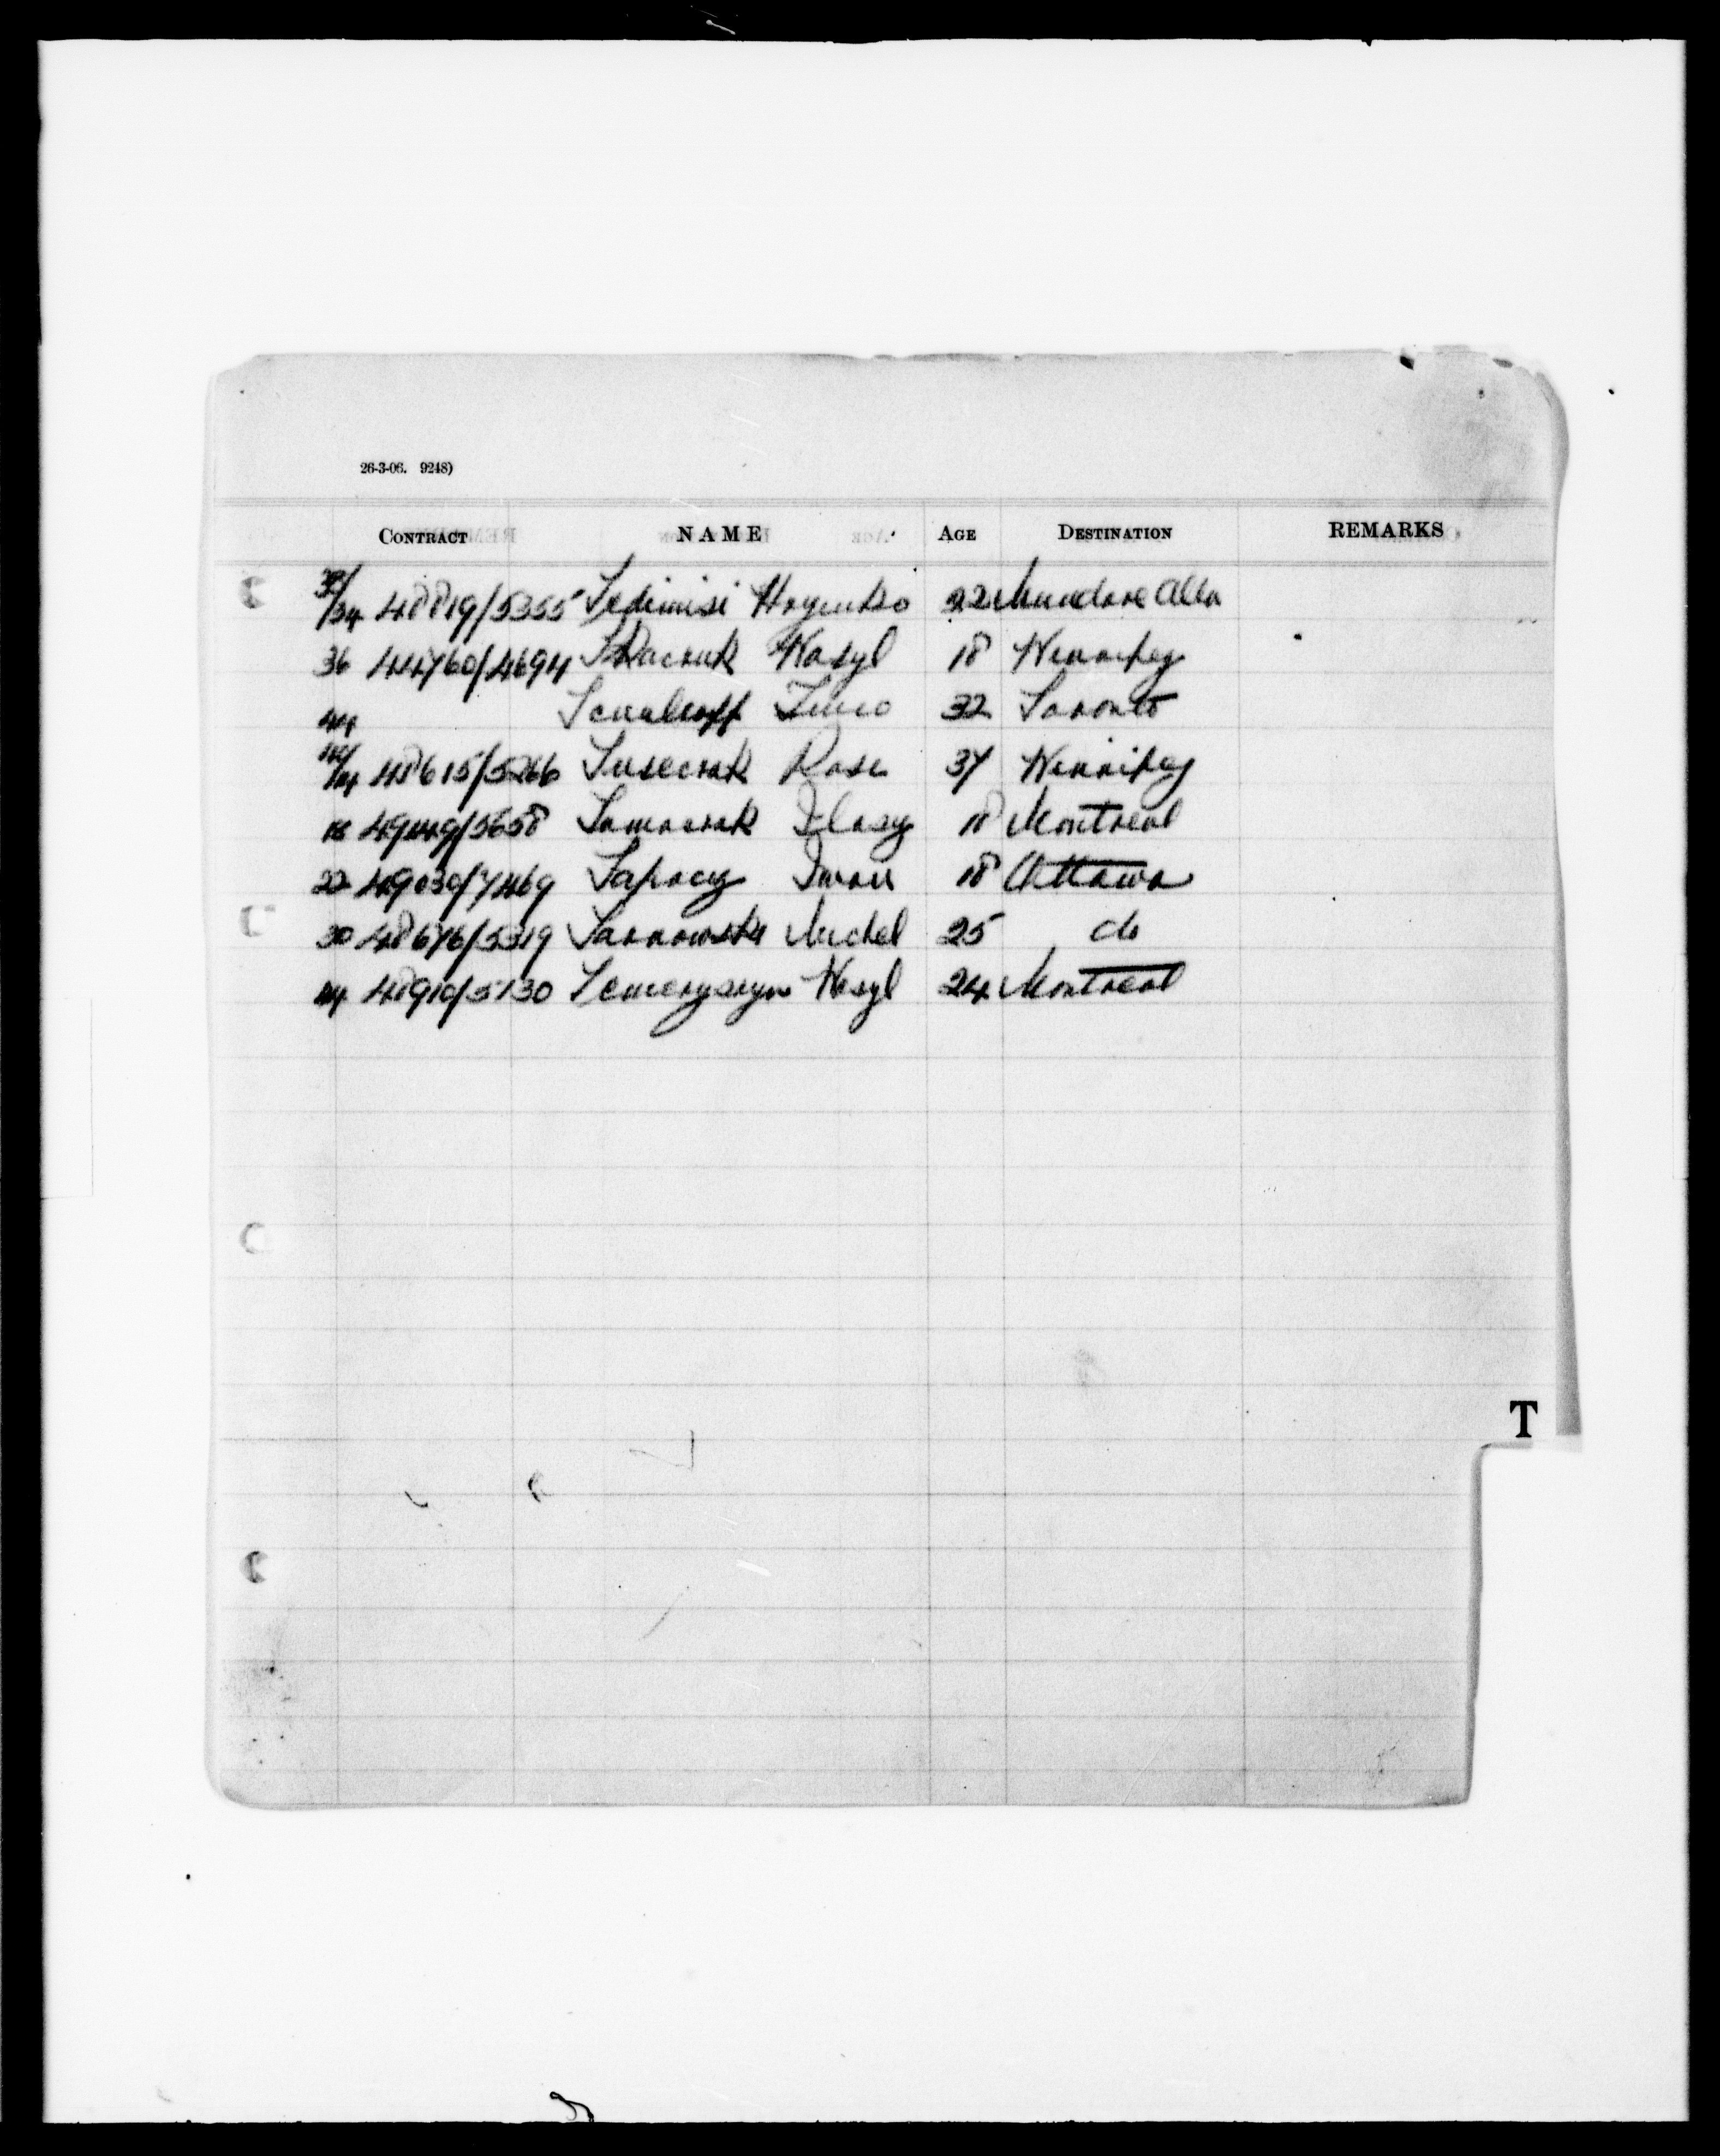 26-3-06. 9248)
CONTRACT NAME AGE DESTINATION REMARKS
34 48819/5355 Tedimisi Hryenko 22 Mundare Alta
36 44760/4694 Tkaczuk Wasyl 18 Winnipeg
44 32 Toronto
48615/5266 Rose 37 Winnipeg
18 49449/5658 Tomaczak 18 Montreal
22 49030/7469 Tapacy Iwan 18 Ottawa
30 48676/5319 Tarnowski Michel 25 do
44 48910/5130 Wasyl 24 Montreal
T